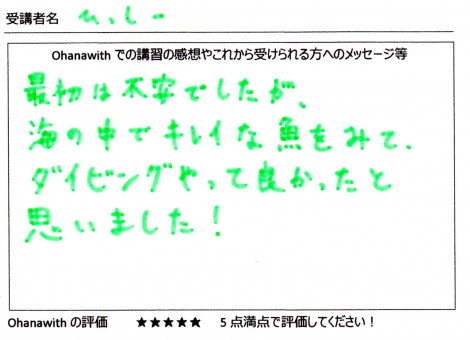 受講者名 ひっしー
Ohanawith での講習の感想やこれから受けられる方へのメッセージ等
最初は不安でしたが、
海の中でキレイな魚をみて、
ダイビングやって良かったと
思いました！
Ohanawith の評価 ★★★★★ 5 点満点で評価してください！